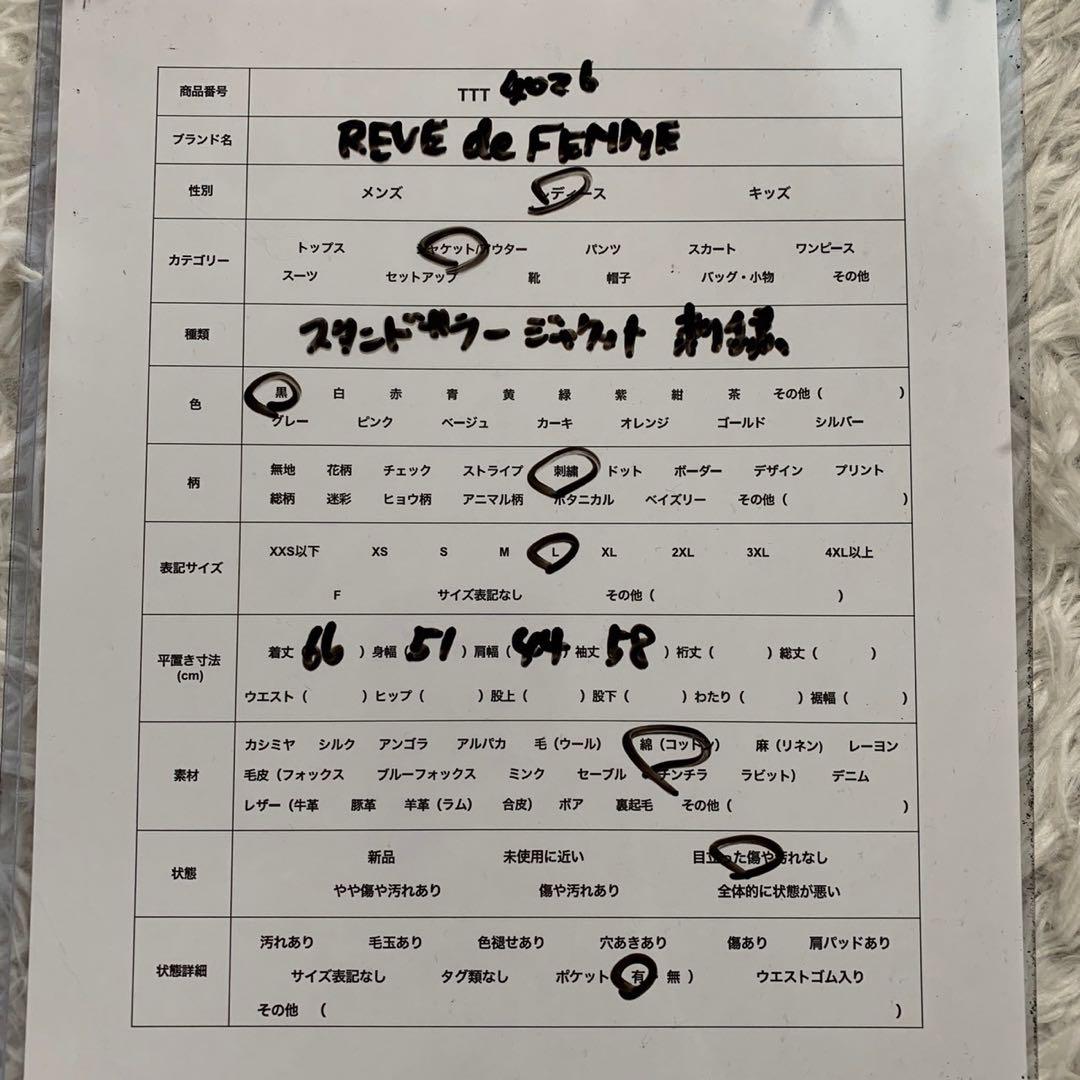 商品番号 TTT 4026
ブランド名 REVE de FEMME
性別 メンズ レディース キッズ
カテゴリー トップス ジャケット/アウター パンツ スカート ワンピース
スーツ セットアップ 靴 帽子 バッグ・小物 その他
種類 スタンドカラー ジャケット 刺繍、
色 黒 白 赤 青 黄 緑 紫 紺 茶 その他( )
グレー ピンク ベージュ カーキ オレンジ ゴールド シルバー
柄 無地 花柄 チェック ストライプ 刺繍 ドット ボーダー デザイン プリント
総柄 迷彩 ヒョウ柄 アニマル柄 ボタニカル ペイズリー その他( )
表記サイズ XXS以下 XS S M L XL 2XL 3XL 4XL以上
F サイズ表記なし その他( )
平置き寸法 (cm) 着丈 66 ) 身幅 ( 51 ) 肩幅 ( 44 ) 袖丈 58 ) 裄丈 ( ) 総丈 ( )
ウエスト ( ) ヒップ ( ) 股上 ( ) 股下 ( ) わたり ( ) 裾幅 ( )
素材 カシミヤ シルク アンゴラ アルパカ 毛(ウール) 綿(コットン) 麻(リネン) レーヨン
毛皮(フォックス ブルーフォックス ミンク セーブル チンチラ ラビット) デニム
レザー(牛革 豚革 羊革(ラム) 合皮) ボア 裏起毛 その他( )
状態 新品 未使用に近い 目立った傷や汚れなし
やや傷や汚れあり 傷や汚れあり 全体的に状態が悪い
状態詳細 汚れあり 毛玉あり 色褪せあり 穴あきあり 傷あり 肩パッドあり
サイズ表記なし タグ類なし ポケット 有 無 ) ウエストゴム入り
その他 ( )